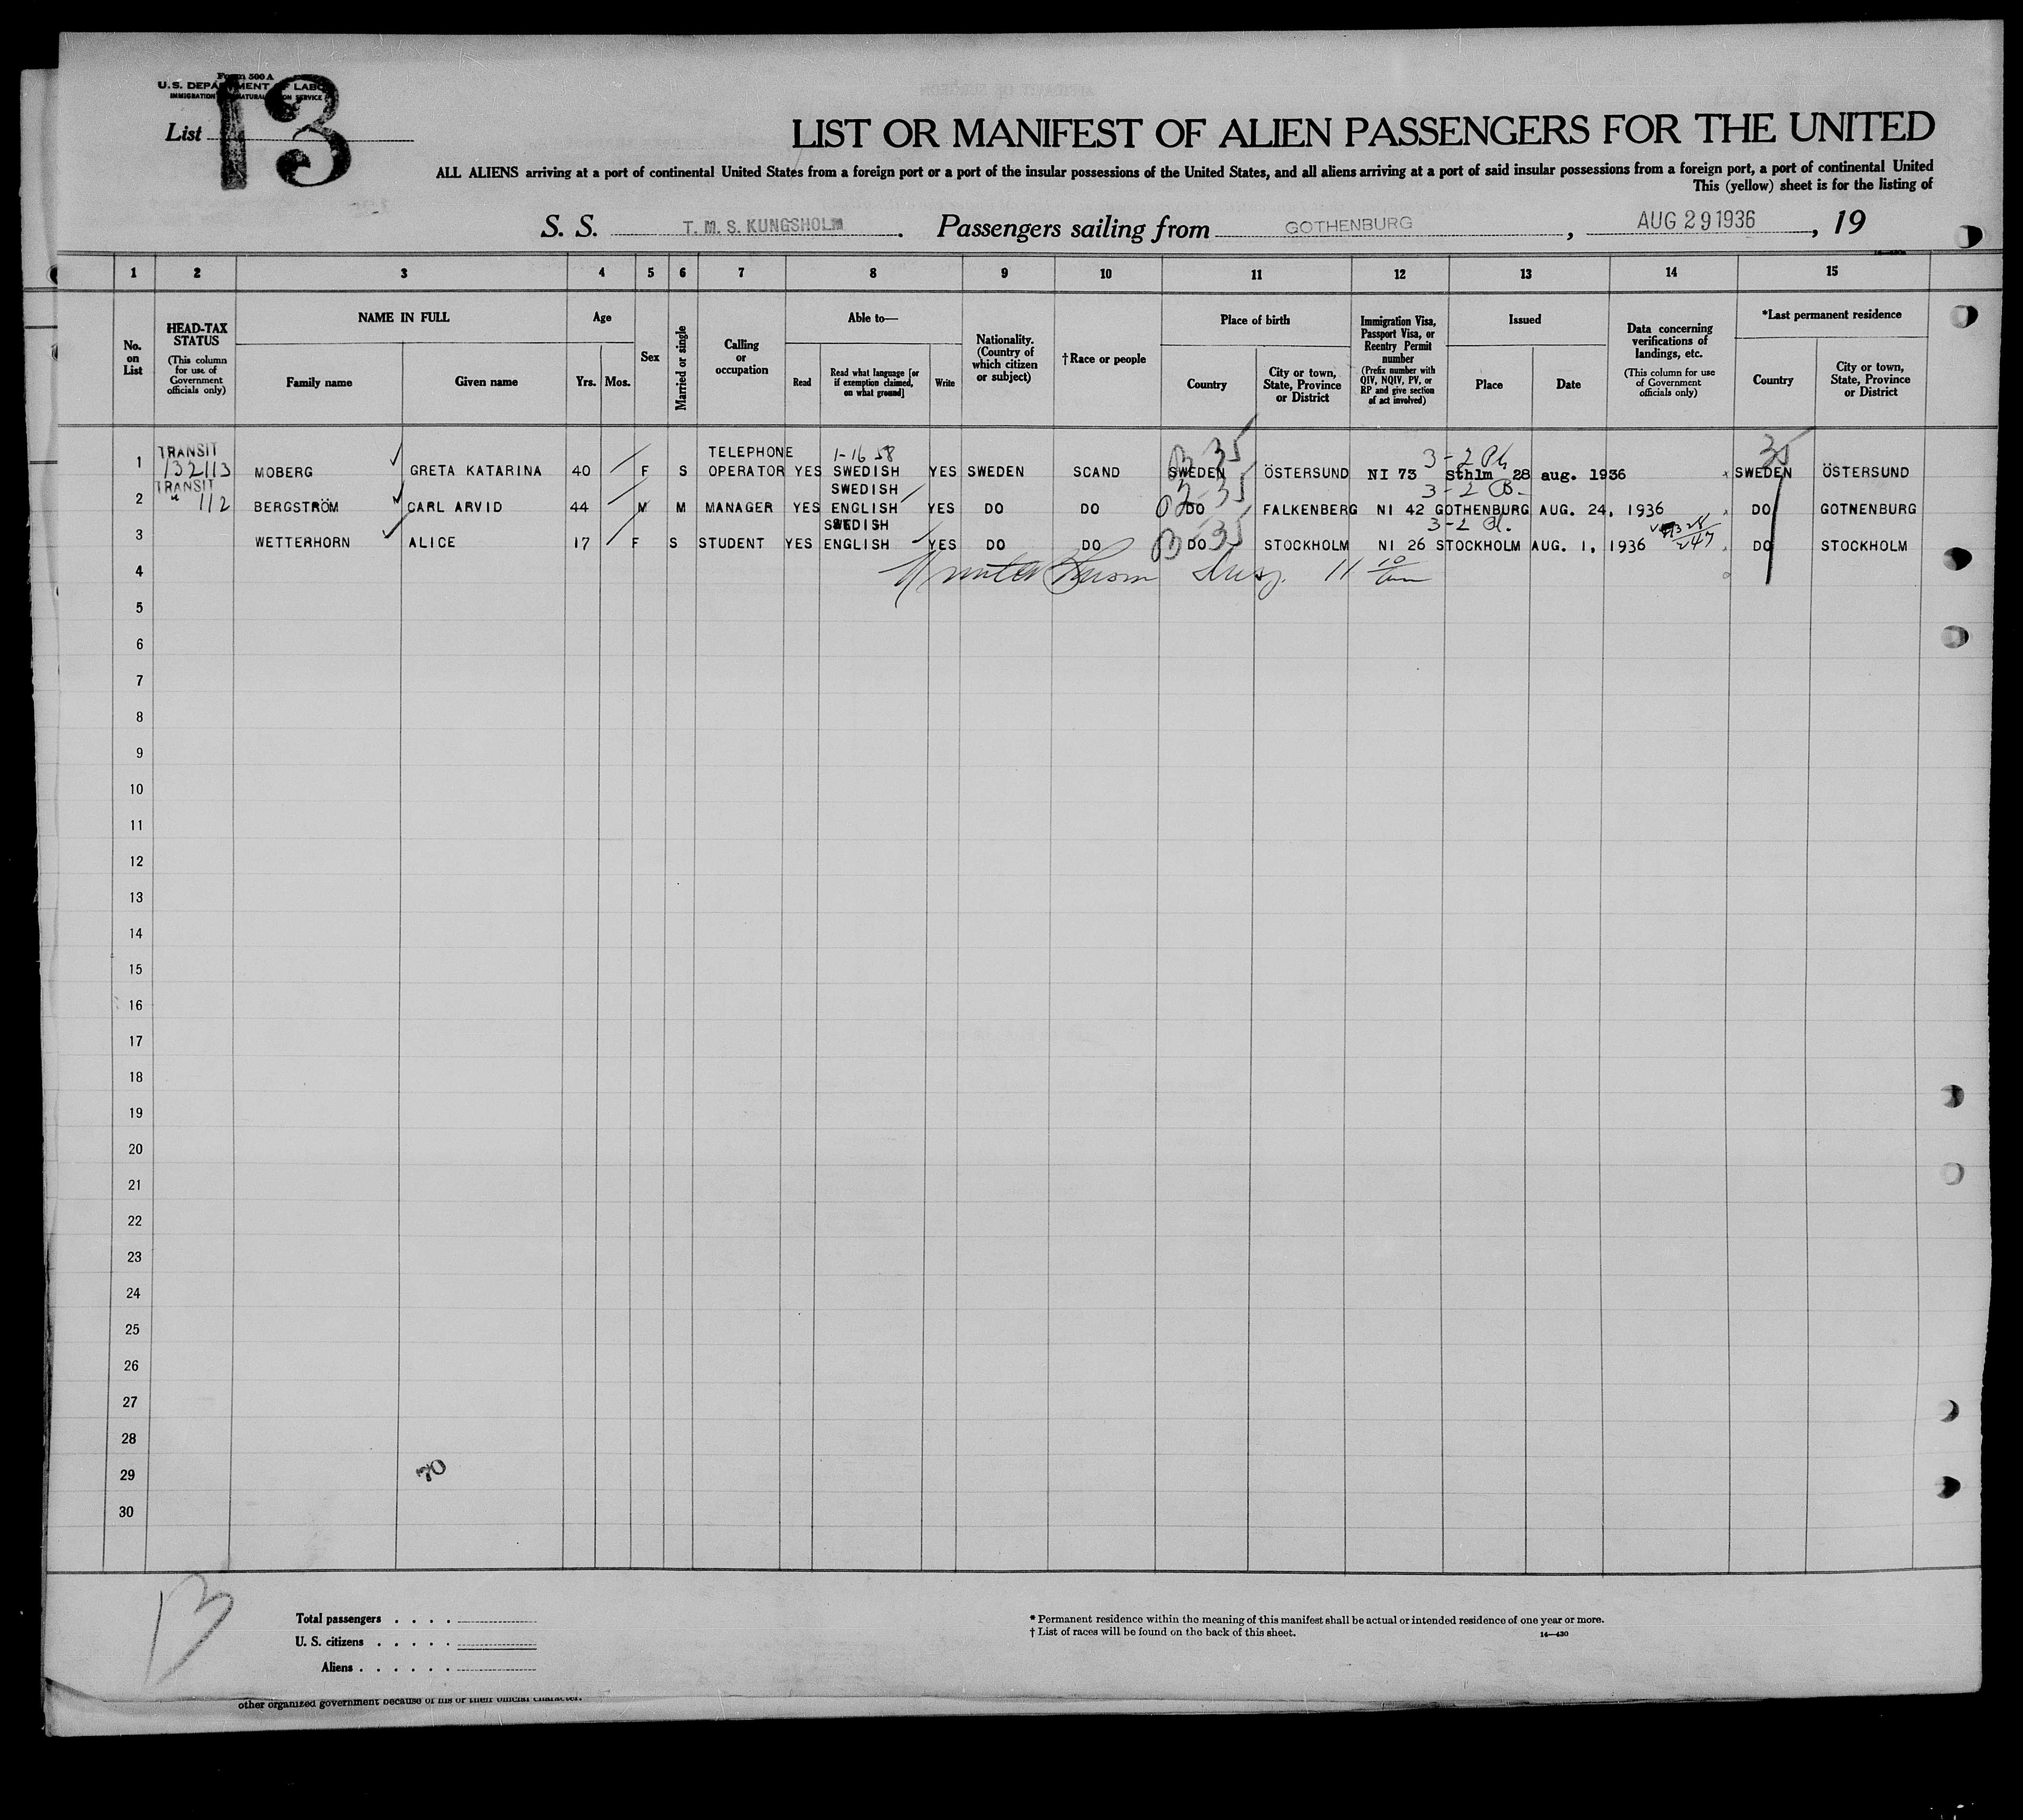 Form 500 A
U. S. DEPARTMENT OF LABOR
IMMIGRATION AND NATURALIZATION SERVICE
List 13
LIST OR MANIFEST OF ALIEN PASSENGERS FOR THE UNITED
ALL ALIENS arriving at a port of continental United States from a foreign port or a port of the insular possessions of the United States, and all aliens arriving at a port of said insular possessions from a foreign port, a port of continental United
This (yellow) sheet is for the listing of
S. S. T. M. S. KUNGSHOLM. Passengers sailing from GOTHENBURG, AUG 29 1936, 19
1 2 3 4 5 6 7 8 9 10 11 12 13 14 15
No. on List
HEAD-TAX STATUS
(This column for use of Government officials only)
NAME IN FULL
Family name
Given name
Age
Yrs. Mos.
Sex
Married or single
Calling or occupation
Able to—
Read
Read what language [or if exemption claimed, on what ground]
Write
Nationality. (Country of which citizen or subject)
†Race or people
Place of birth
Country
City or town, State, Province or District
Immigration Visa, Passport Visa, or Reentry Permit number
(Prefix number with QIV, NQIV, PV, or RP and give section of act involved)
Issued
Place
Date
Data concerning verifications of landings, etc.
(This column for use of Government officials only)
*Last permanent residence
Country
City or town, State, Province or District
TRANSIT TELEPHONE 1-16 58 B 35 3-2 Ph 35
1 132113 MOBERG GRETA KATARINA 40 F S OPERATOR YES SWEDISH YES SWEDEN SCAND SWEDEN ÖSTERSUND NI 73 Sthlm 28 aug. 1936 SWEDEN ÖSTERSUND
TRANSIT SWEDISH 35 3-2 B-
2 " 112 BERGSTRÖM CARL ARVID 44 M M MANAGER YES ENGLISH YES DO DO DO FALKENBERG NI 42 GOTHENBURG AUG. 24, 1936 DO GOTNENBURG
SWEDISH B-35 3-2
3 WETTERHORN ALICE 17 F S STUDENT YES ENGLISH YES DO DO DO STOCKHOLM NI 26 STOCKHOLM AUG. 1, 1936 DO STOCKHOLM
4 11
5
6
7
8
9
10
11
12
13
14
15
16
17
18
19
20
21
22
23
24
25
26
27
28
29
30
13
Total passengers . . . .
U. S. citizens . . . . .
Aliens . . . . . .
* Permanent residence within the meaning of this manifest shall be actual or intended residence of one year or more.
† List of races will be found on the back of this sheet.
14—430
other organized government because of his or their official character.